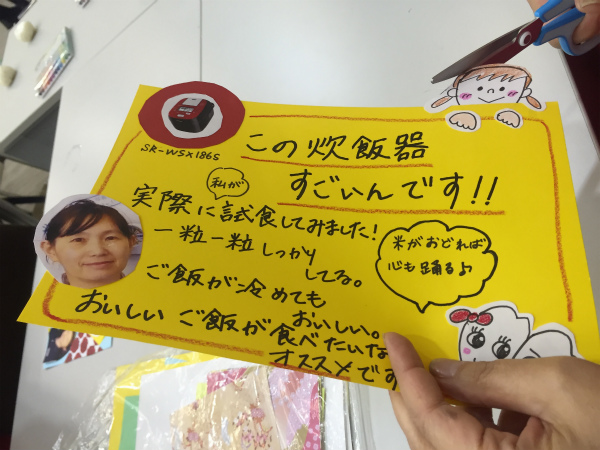 SR-WSX186S
この炊飯器
すごいんです!!
私が
実際に試食してみました!
一粒一粒しっかり
してる。
ご飯が冷めても
おいしい。
米がおどれば
心も踊る♪
おいしいご飯が食べたいな
オススメです